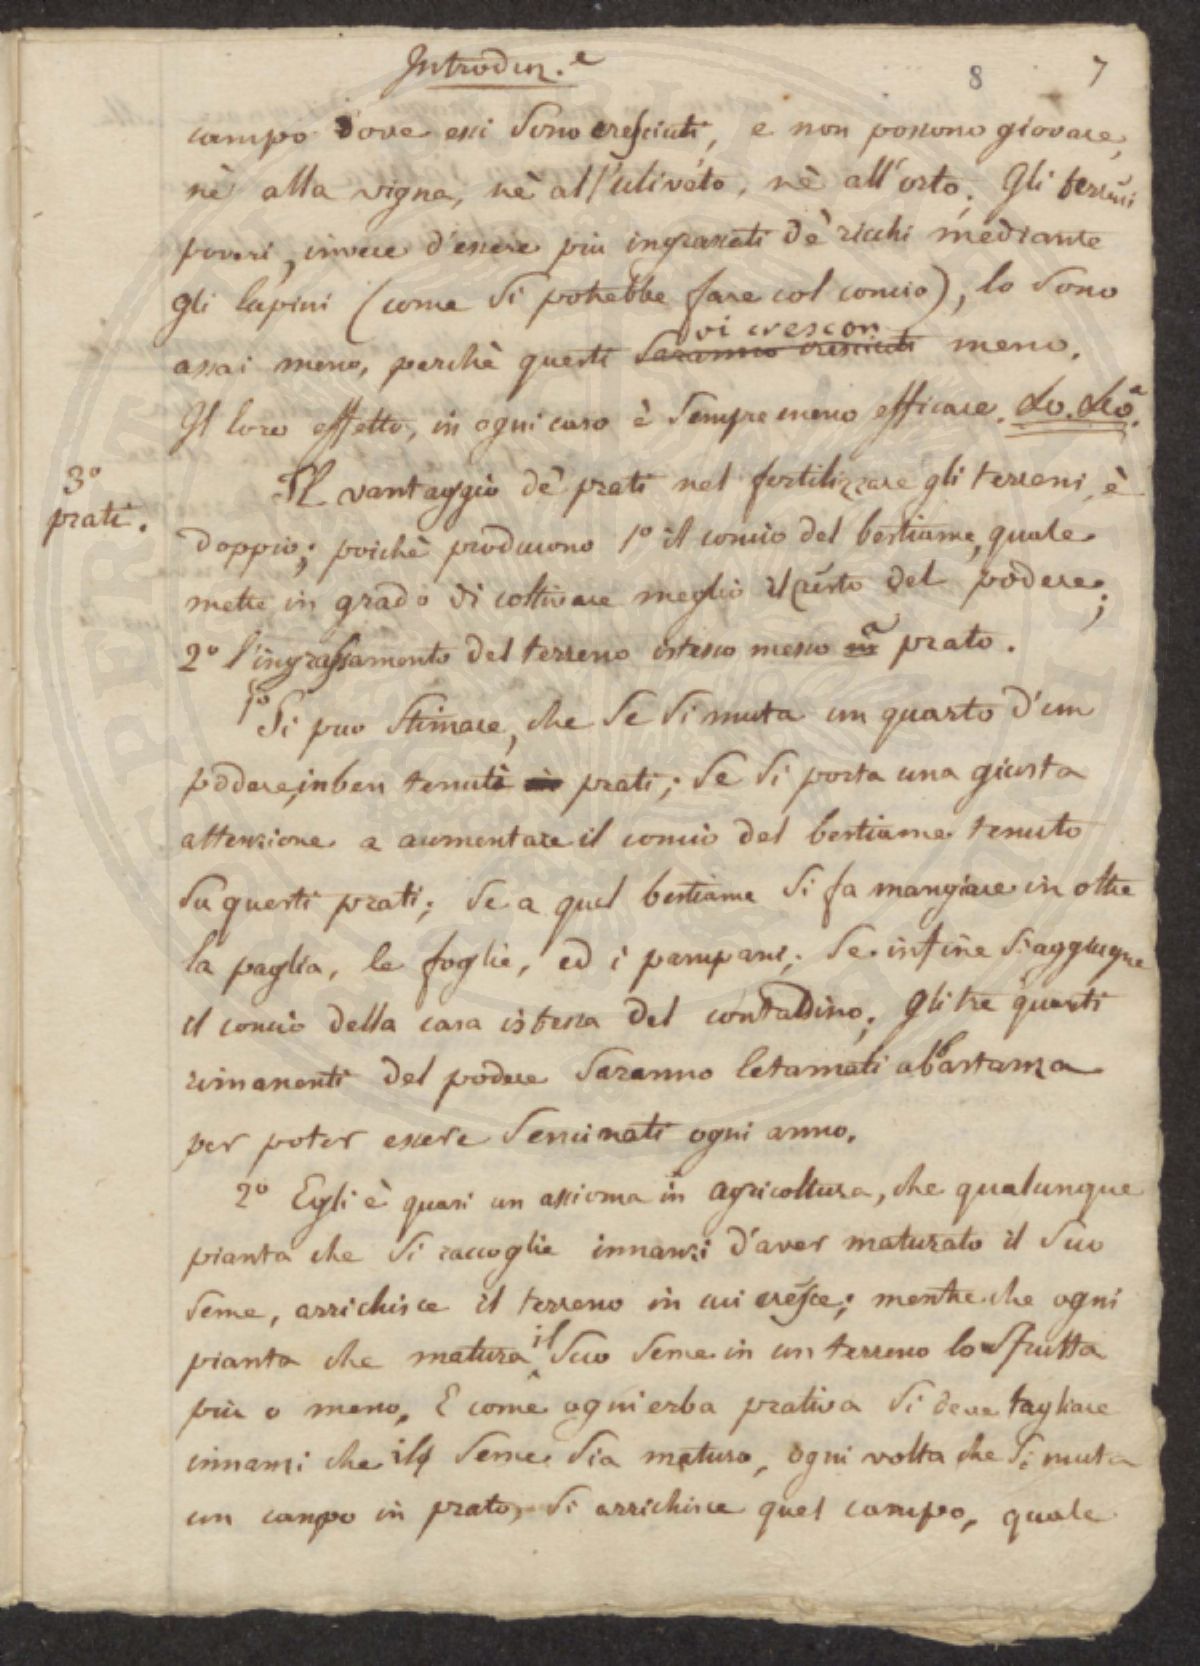 Introduz.e
8 7
campo dove essi sono cresciuti, e non possono giovare,
nè alla vigna, nè all'uliveto, nè all'orto. Gli terreni
poveri, invece d'essere più ingrassati de' ricchi mediante
gli lupini (come si potrebbe fare col concio), lo sono
vi crescon
assai meno, perchè questi saranno cresciuti meno.
Il loro effetto, in ogni caso è sempre meno efficace.
3º
prati.
Il vantaggio de' prati nel fertilizzare gli terreni, è
doppio; poichè producono 1º il concio del bestiame, quale
mette in grado di coltivare meglio il resto del podere;
2º l'ingrassamento del terreno istesso messo a prato.
1º Si puo stimare, che se si muta un quarto d'un
podere, in ben tenuti in prati; se si porta una giusta
attenzione a aumentare il concio del bestiame tenuto
su questi prati; se a quel bestiame si fa mangiare in oltre
la paglia, le foglie, ed i pampani; se infine s'aggiugne
il concio della casa istessa del contadino; gli tre quarti
rimanenti del podere saranno letamati abbastanza
per poter essere seminati ogni anno.
2º Egli è quasi un assioma in agricoltura, che qualunque
pianta che si raccoglie innanzi d'aver maturato il suo
seme, arrichisce il terreno in cui cresce; mentre che ogni
pianta che matura il suo seme in un terreno lo sfrutta
più o meno. E come ogni erba prativa si deve tagliare
innanzi che il seme sia maturo, ogni volta che si muta
un campo in prato, si arrichisce quel campo, quale